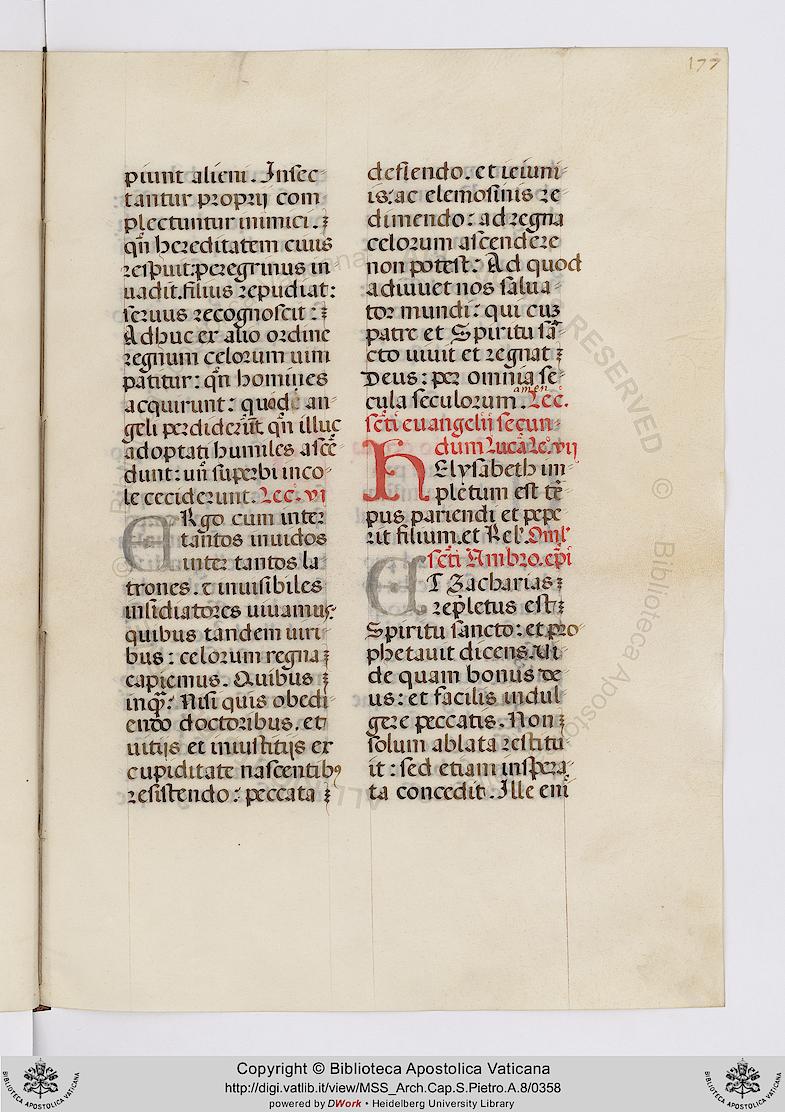 177
piunt alieni. Insec
tantur proprij com
plectuntur inimici.
qñ hereditatem ciuis
respuit: peregrinus in
uadit. filius repudiat:
seruus recognoscit:
Adhuc ex alio ordine
regnum celorum uim
patitur: qñ homines
acquirunt: quod an
geli perdiderũt qñ illuc
adoptati humiles ascẽ
dunt: uñ superbi inco
le ceciderunt. Lec̃. vi
ERgo cum inter
tantos inuidos
inter tantos la
trones. ⁊ inuisibiles
insidiatores uiuamus:
quibus tandem uiri
bus: celorum regna
capiemus. Quibus
inq̃: Nisi quis obedi
endo doctoribus. et
uitijs et iniustitijs ex
cupiditate nascentibꝰ
resistendo: peccata
deflendo. et ieiuni
is: ac elemosinis re
dimendo: ad regna
celorum ascendere
non potest: Ad quod
adiuuet nos salua
tor mundi: qui cuꝫ
patre et Spiritu sã
cto uiuit et regnat
Deus: per omnia se
cula seculorum. amen Lec̃.
sc̃ti euangelii secun
dum Lucã Lc̃. vij
HElysabeth im
pletum est tẽ
pus pariendi et pepe
rit filium. et Rel. Oml̃
sc̃ti Ambro. ep̃i
ET Zacharias
repletus est
Spiritu sancto: et pro
phetauit dicens. Vi
de quam bonus de
us: et facilis indul
gere peccatis. Non
solum ablata restitu
it: sed etiam inspera
ta concedit. Ille eni
Copyright © Biblioteca Apostolica Vaticana
http://digi.vatlib.it/view/MSS_Arch.Cap.S.Pietro.A.8/0358
powered by DWork • Heidelberg University Library